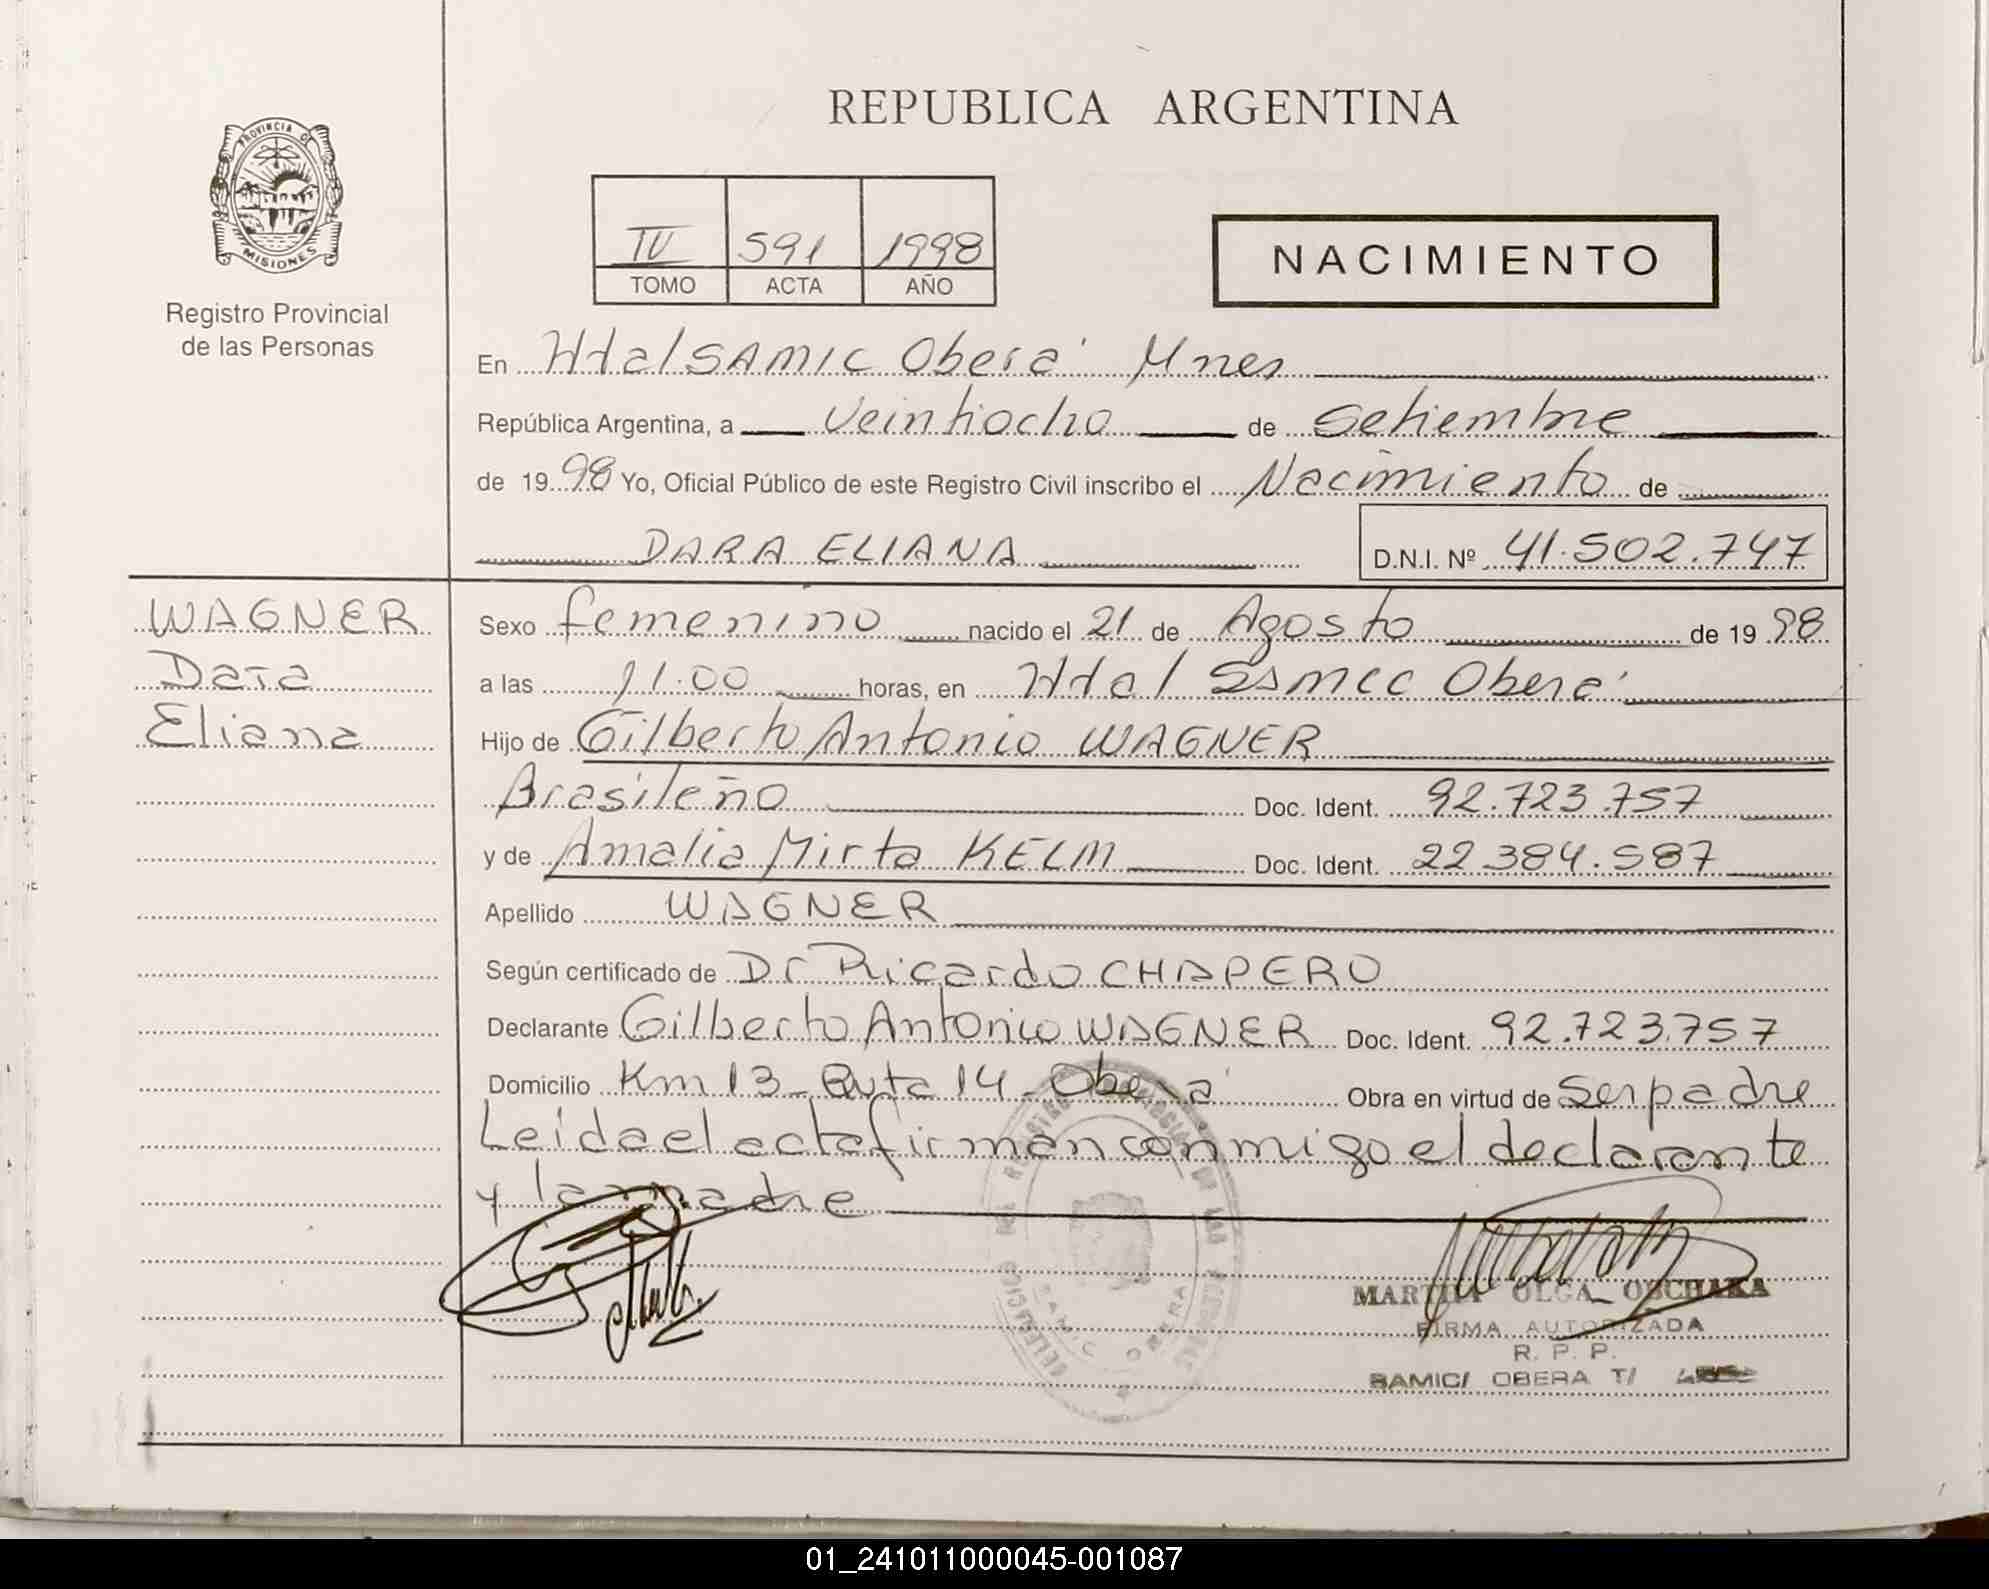 REPUBLICA ARGENTINA
PROVINCIA DE
MISIONES
Registro Provincial
de las Personas
IV 591 1998
TOMO ACTA AÑO
NACIMIENTO
En Htal SAMIC Oberá Mnes
República Argentina, a veintiocho de Setiembre
de 1998 Yo, Oficial Público de este Registro Civil inscribo el Nacimiento de
DARA ELIANA D.N.I. Nº 41.502.747
WAGNER
Dara
Eliana
Sexo femenino nacido el 21 de Agosto de 1998
a las 11.00 horas, en Htal SAMIC Oberá
Hijo de Gilberto Antonio WAGNER
Brasileño Doc. Ident. 92.723.757
y de Amalia Mirta KELM Doc. Ident. 22.384.587
Apellido WAGNER
Según certificado de Dr Ricardo CHAPERO
Declarante Gilberto Antonio WAGNER Doc. Ident. 92.723.757
Domicilio Km 13 - Ruta 14 - Oberá Obra en virtud de ser padre
Leída el acta firman conmigo el declarante
y la madre
MARTHA OLGA
FIRMA AUTORIZADA
R. P. P.
SAMIC/ OBERA T/
01_241011000045-001087